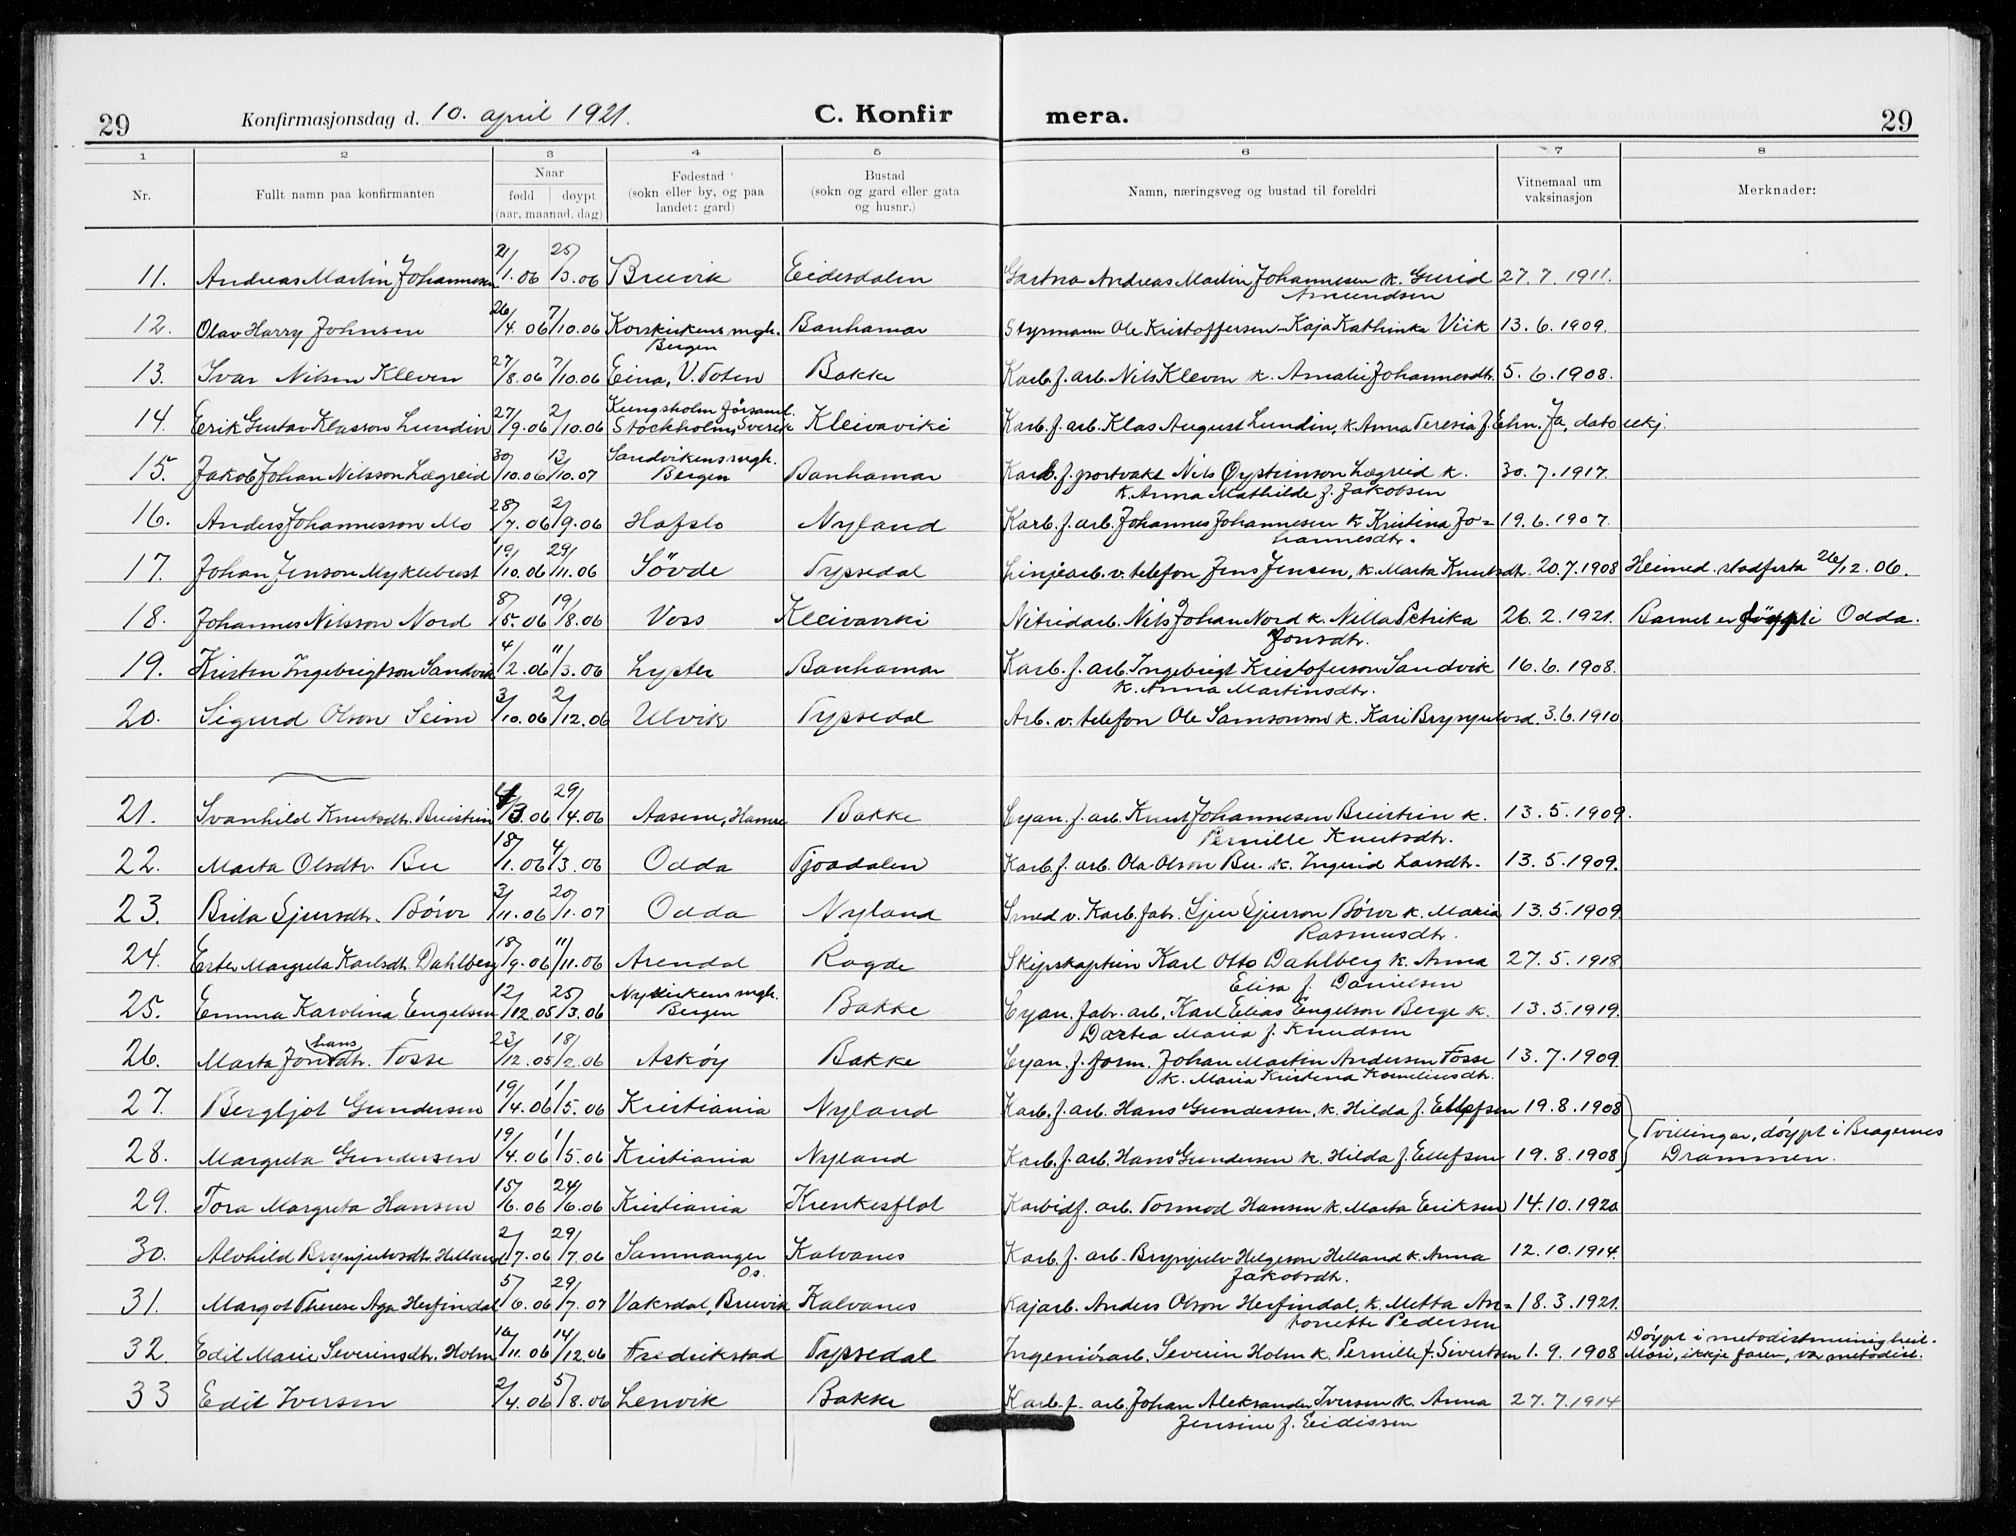 29 Konfirmasjonsdag d. 10. april 1921. C. Konfir mera. 29
1 2 3 4 5 6 7 8
Nr. Fullt namn paa konfirmanten Naar fødd døypt (aar, maanad, dag) Fødestad (sokn eller by, og paa landet: gard) Bustad (sokn og gard eller gata og husnr.) Namn, næringsveg og bustad til foreldri Vitnemaal um vaksinasjon Merknader:
11. Andreas Martin Johannesen 21/1.06 25/3.06 Breivik Eidesdalen Gartnar Andreas Martin Johannesen k. Gurid 27.7.1911.
Amundsen
12. Olav Harry Johnsen 26/4.06 7/10.06 Korskirkens mgh. Banhamar Styrmann Ole Kristoffersen - Kaja Kathinka Viik 13.6.1909.
Bergen
13. Ivar Nilsen Kleven 27/8.06 7/10.06 Eina, V. Toten Bakke Karb. f. arb. Nils Kleven k. Amalie Johannesdtr. 5.6.1908.
Kungsholm församl.
14. Erik Gustav Klasson Lundin 27/9.06 2/10.06 Stockholm, Sverik Kleivaviki Karb. f. arb. Klas August Lundin, k. Anna Teresia f. Ehn. Ja, dato ukj.
Sandvikens mgh.
15. Jakob Johan Nilsson Lægreid 30/10.06 13/10.07 Bergen Banhamar Karb. f. portvakt Nils Øysteinson Lægreid k. 30.7.1917.
k. Anna Mathilde f. Jakobsen
16. Anders Johannesson Mo 28/7.06 2/9.06 Hafslo Nyland Karb. f. arb. Johannes Johannesen k. Kristina Jo= 19.6.1907.
hannesdtr.
17. Johan Jenson Myklebust 19/10.06 29/11.06 Sövde Typsedal Linjearb. v. telefon Jens Jensen, k. Marta Knutsdtr. 20.7.1908 Heimed. stadfesta 26/12.06.
18. Johannes Nilsson Nord 8/5.06 19/8.06 Voss Kleivaviki Nitridarb. Nils Johan Nord k. Nilla Petrika 26.2.1921. Barnet er döypt i Odda.
Jonsdtr.
19. Kristen Ingebrigtson Sandvik 4/2.06 11/3.06 Lyster Banhamar Karb. f. arb. Ingebrigt Kristoferson Sandvik 16.6.1908.
k. Anna Martinsdtr.
20. Sigurd Olson Seim 3/10.06 2/12.06 Ulvik Typsedal Arb. v. telefon Ole Samsonson k. Kari Brynjulvsd. 3.6.1910
21. Svanhild Knutsdtr. Breistein 4/3.06 29/4.06 Aasene, Hamre Bakke Cyan. f. arb. Knut Johannesen Breistein k. 13.5.1909.
Pernille Knutsdtr.
22. Marta Olsdtr. Bu 18/1.06 4/3.06 Odda Tjoadalen Karb. f. arb. Ola Olson Bu k. Ingerid Larsdtr. 13.5.1909.
23. Brita Sjursdtr. Börve 3/11.06 20/1.07 Odda Nyland Smed v. Karb. fabr. Sjur Sjurson Börve k. Maria 13.5.1909
Rasmusdtr.
24. Ester Margreta Karlsdtr. Dahlberg 18/9.06 11/11.06 Arendal Ragde Skipskaptein Karl Otto Dahlberg k. Anna 27.5.1918
Elisa f. Danielsen
25. Emma Karolina Engelsen 12/12.05 25/3.06 Nykirkens mgh. Bergen Bakke Cyan. fabr. arb. Karl Elias Engelson Berge k. 13.5.1919.
Dortea Maria f. Knudsen
26. Marta Johansdtr. Fosse 23/12.05 18/2.06 Asköy Bakke Cyan. f. form. Johan Martin Andersen Fosse 13.7.1909.
k. Maria Kristena Korneliusdtr.
27. Bergljot Gundersen 19/4.06 1/5.06 Kristiania Nyland Karb. f. arb. Hans Gundersen, k. Hilda f. Ellefsen 19.8.1908
Tvillingar, döypt i Bragernes
28. Margreta Gundersen 19/4.06 1/5.06 Kristiania Nyland Karb. f. arb. Hans Gundersen k. Hilda f. Ellefsen 19.8.1908 Drammen.
29. Tora Margreta Hansen 15/6.06 24/6.06 Kristiania Krenkesflot Karbidf. arb. Tormod Hansen k. Marta Eriksen 14.10.1920
30. Alvhild Brynjulvsdtr. Helland 2/7.06 29/7.06 Samnanger Kalvanes Karb. f. arb. Brynjulv Helgeson Helland k. Anna 12.10.1914.
Os. Jakobsdtr.
31. Margot Therese Aga Herfindal 5/6.06 29/7.07 Vaksdal, Bruvik Kalvanes Kajarb. Anders Olson Herfindal, k. Metta An= 18.3.1921.
tonette Pedersen
32. Edit Marie Severinsdtr. Holm 16/11.06 14/12.06 Fredrikstad Typsedal Ingeniörarb. Severin Holm k. Pernille f. Sivertsen 1.9.1908 Döypt i metodistmenigheit. Mori, ikkje faren, var metodist.
33 Edit Iversen 2/4.06 5/8.06 Lenvik Bakke Karb. f. arb. Johan Aleksander Iversen k. Anna 27.7.1914
Jensine f. Eidissen